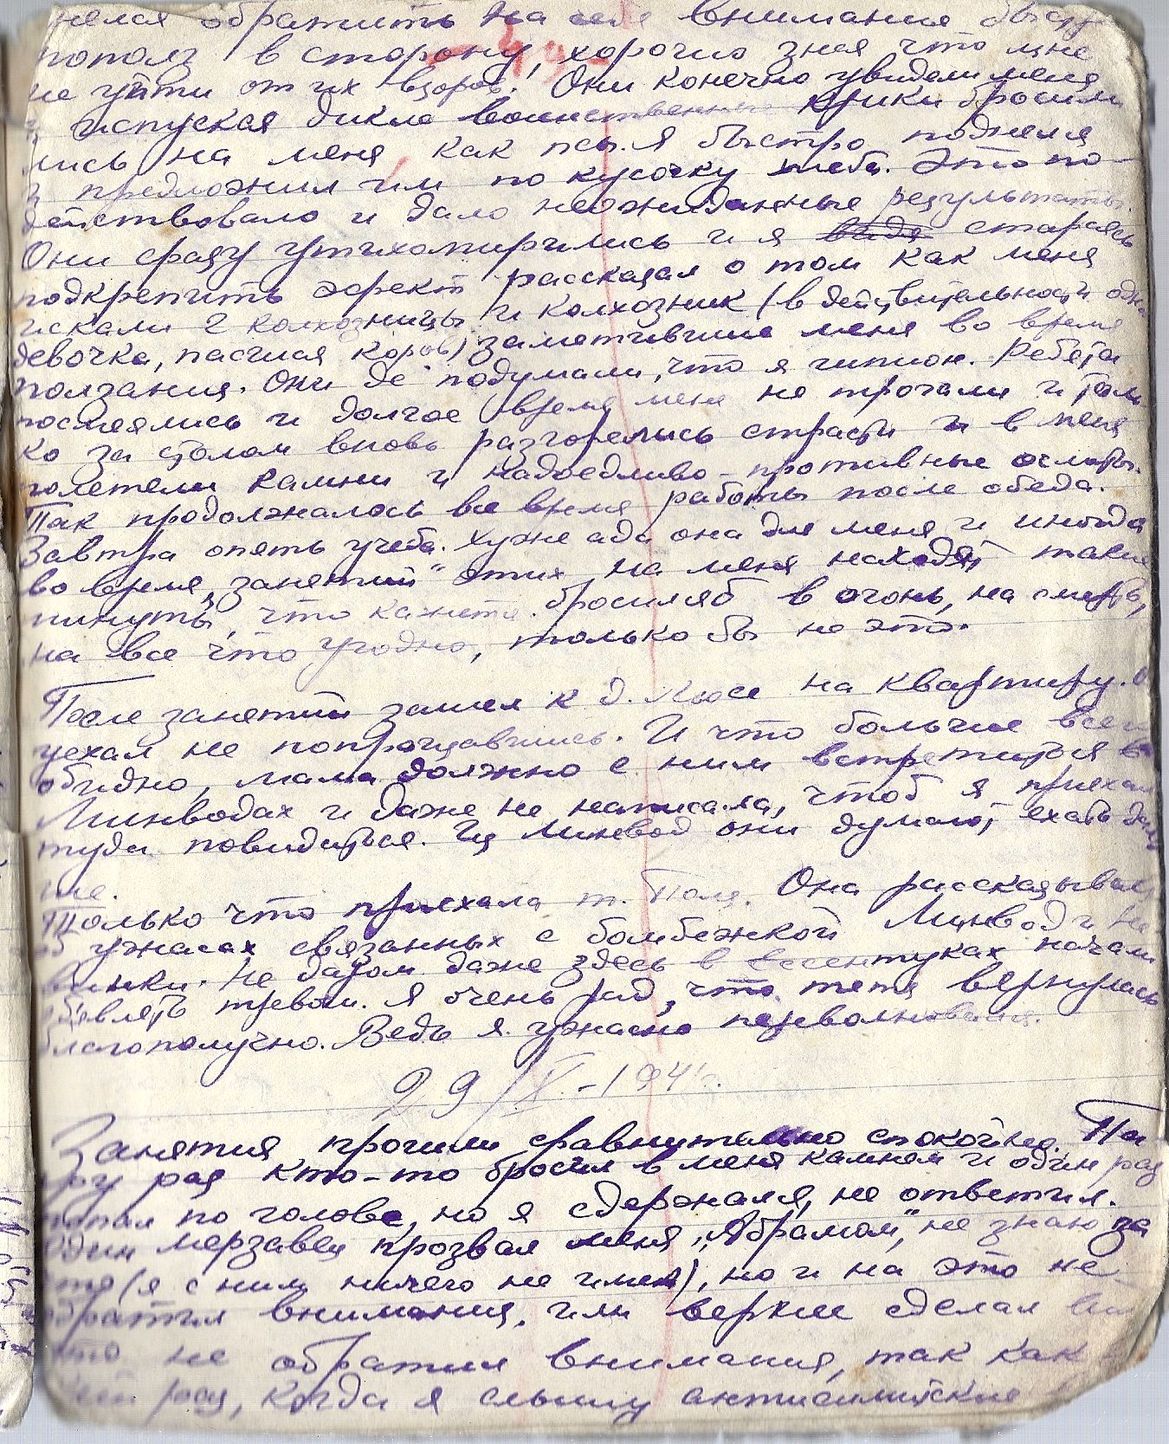 обратить на себя внимания
пополз в сторону, хорошо зная что мне
не уйти от их взоров. Они конечно увидели меня
и испуская дикие воинственные крики бросили
лись на меня как псы. Я быстро поднялся
и предложил им по кусочку хлеба. Это по-
действовало и дало неожиданные результаты.
Они сразу утихомирились и я видя стараясь
подкрепить эфект рассказал о том как меня
искали 2 колхозницы и колхозник (в действительности одна
девочка, пасшая коров) заметившие меня во время
ползания. Они де подумали, что я шпион. Ребята
посмеялись и долгое время меня не трогали и толь
ко за столом вновь разгорелись страсти и в меня
полетели камни и надоедливо-противные остроты.
Так продолжалось все время работы после обеда.
Завтра опять учеба. Хуже ада она для меня и иногда
во время „занятий" этих на меня находят такие
минуты, что кажется бросился б в огонь, на смерть,
на все что угодно, только бы не это.
После занятий зашел к д. Люсе на квартиру.
уехал не попрощавшись. И что больше всего
обидно, мама должно с ним встретится в
Минводах и даже не написала, чтоб я приехал
туда повидаться. Из Минвод они думают ехать даль
ше.
Только что приехала т. Поля. Она рассказывала
об ужасах связанных с бомбежкой Минвод и Не
винки. Не даром даже здесь в Ессентуках начали
обявлять тревоги. Я очень рад, что тетя вернулась
благополучно. Ведь я ужасно переволновался.
29/X-1941г.
Занятия прошли сравнительно спокойно. Па
ру раз кто-то бросил в меня камнем и один раз
попал по голове, но я сдержался, не ответил.
Один мерзавец прозвал меня „Абрамом," не знаю за
что (я с ним ничего не имел), но и на это не
обратил внимания, или вернее сделал вид
что не обратил внимания, так как
раз, когда я слышу антисемитские